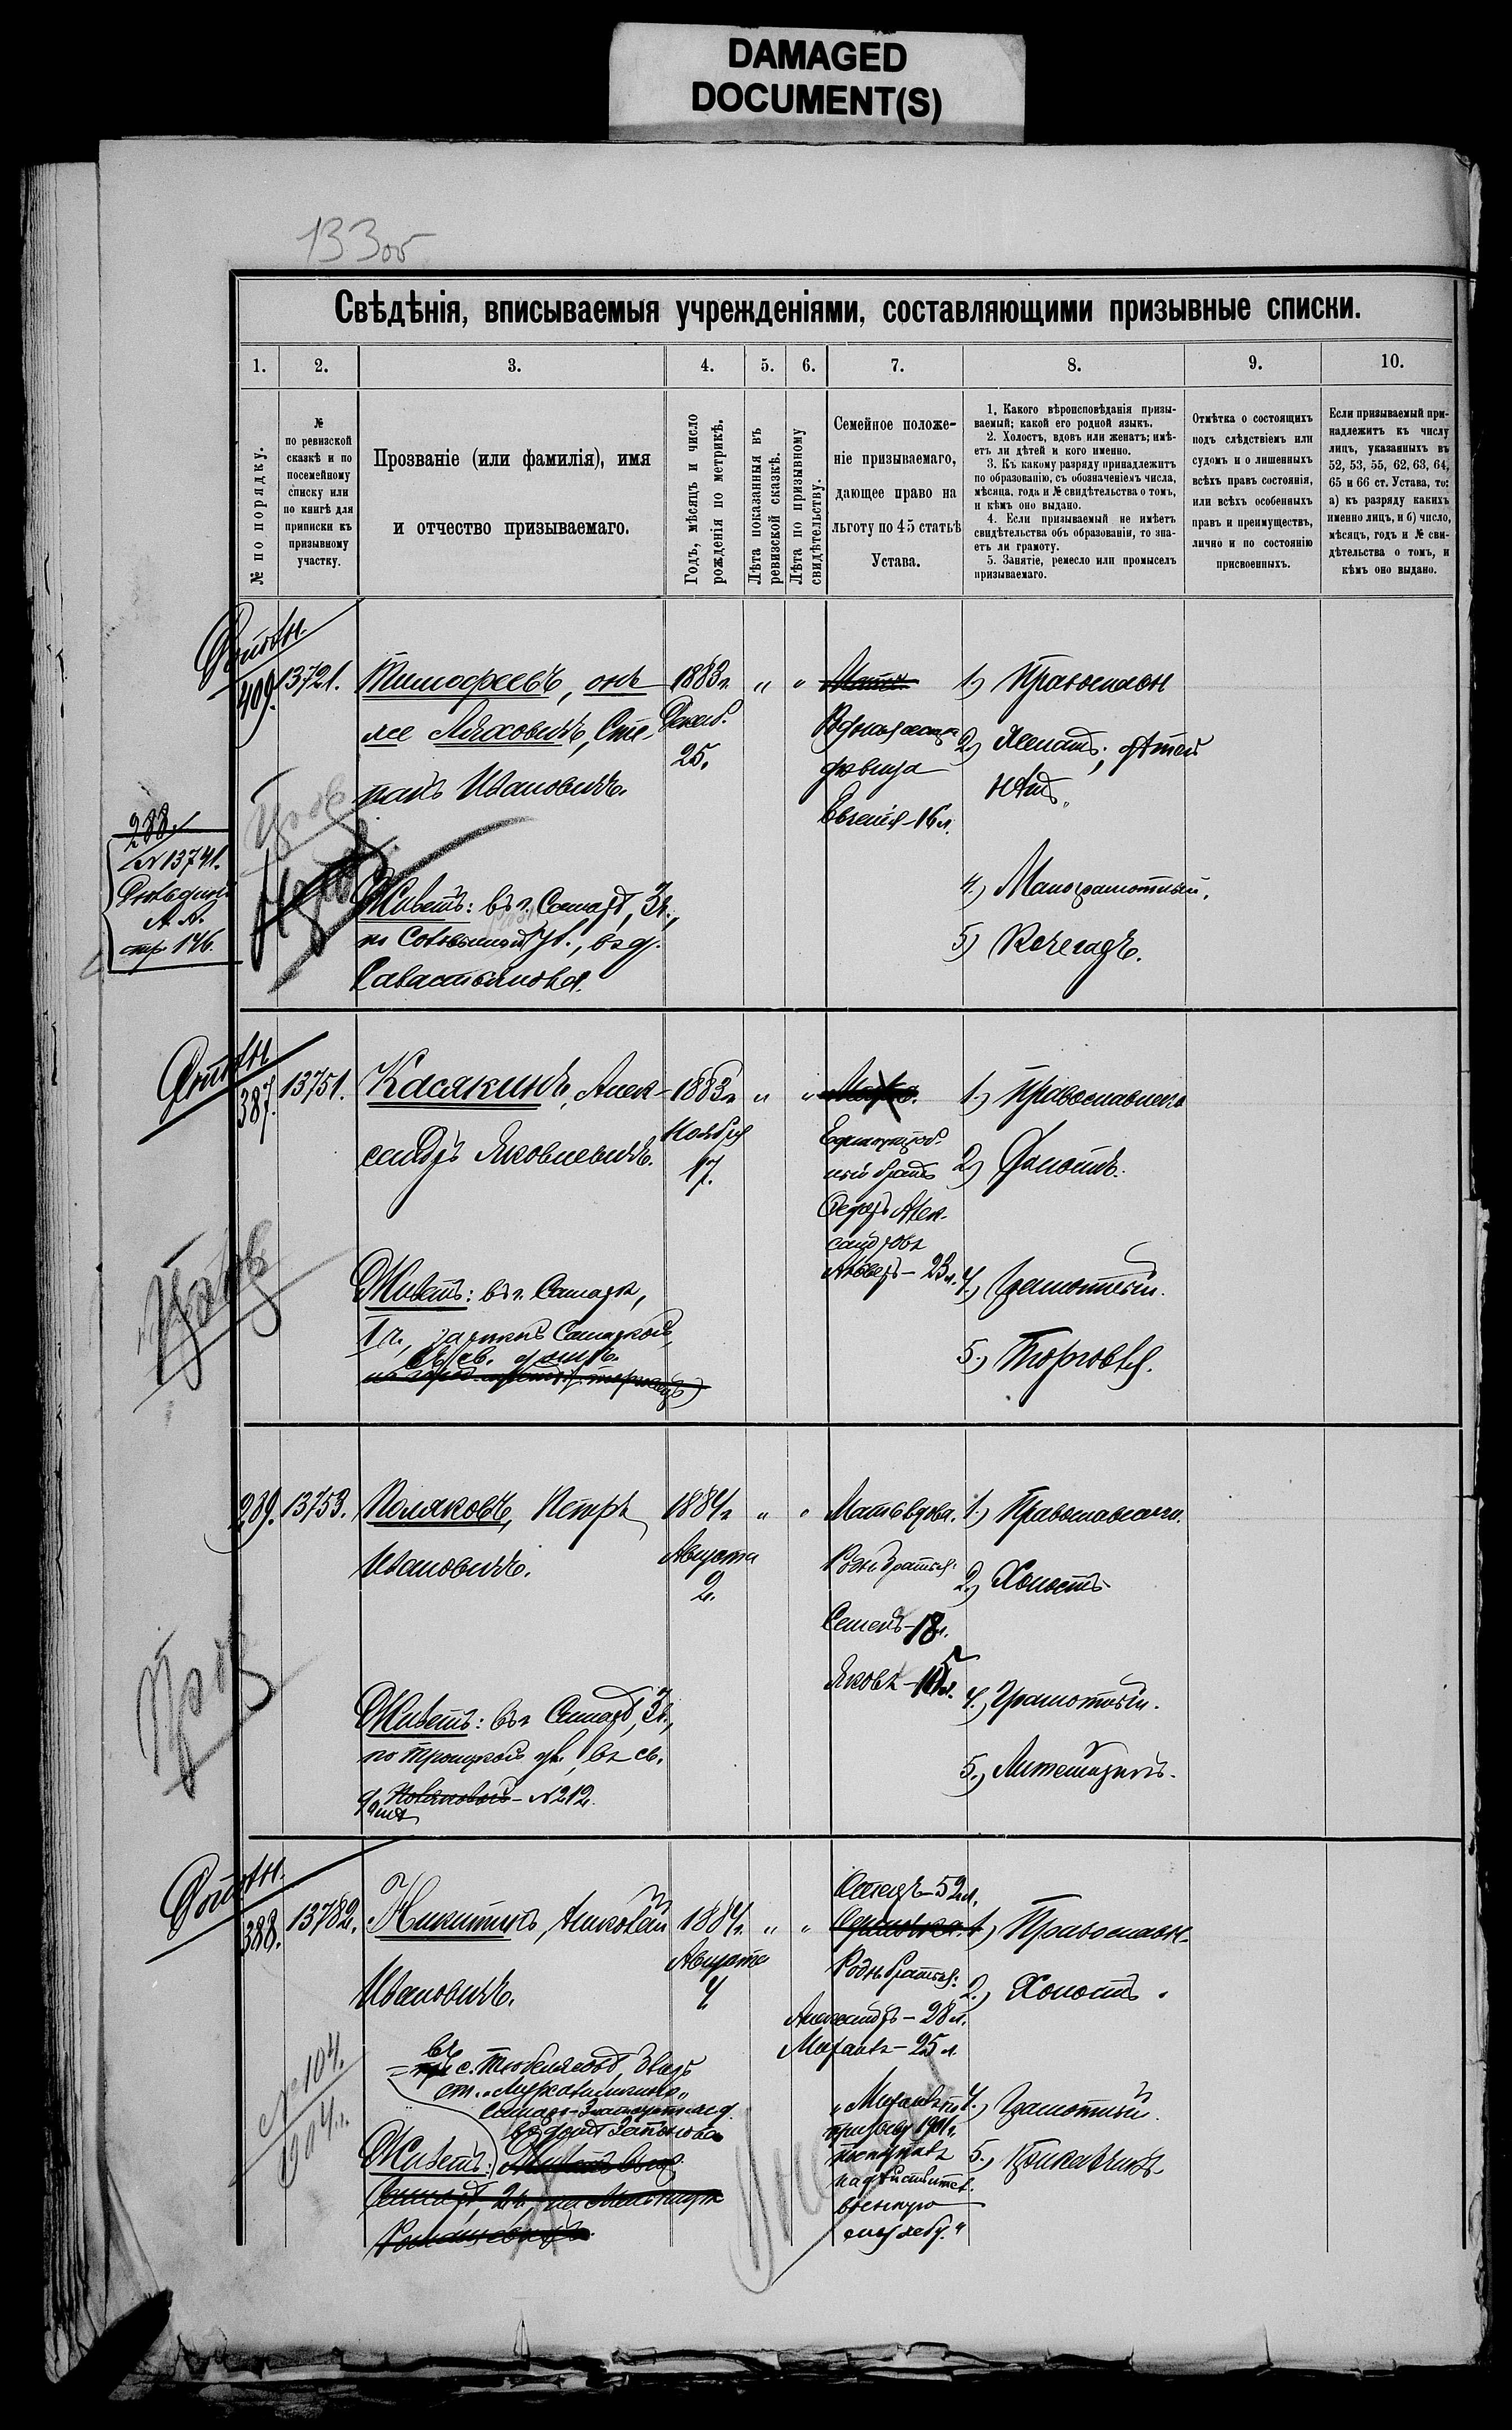 DAMAGED
DOCUMENT(S)
133об
Свѣдѣнія, вписываемыя учрежденіями, составляющими призывные списки.
1.
2.
3.
4.
5.
6.
7.
8.
9.
10.
№ по порядку.
№
по ревизской
сказкѣ и по
посемейному
списку или
по книгѣ для
приписки къ
призывному
участку.
Прозваніе (или фамилія), имя
и отчество призываемаго.
Годъ, мѣсяцъ и число
рожденія по метрикѣ.
Лѣта показанныя въ
ревизской сказкѣ.
Лѣта по призывному
свидѣтельству.
Семейное положе-
ніе призываемаго,
дающее право на
льготу по 45 статьѣ
Устава.
1. Какого вѣроисповѣданія призы-
ваемый; какой его родной языкъ.
2. Холостъ, вдовъ или женатъ; имѣ-
етъ ли дѣтей и кого именно.
3. Къ какому разряду принадлежитъ
по образованію, съ обозначеніемъ числа,
мѣсяца, года и № свидѣтельства о томъ,
и кѣмъ оно выдано.
4. Если призываемый не имѣетъ
свидѣтельства объ образованіи, то зна-
етъ ли грамоту.
5. Занятіе, ремесло или промыселъ
призываемаго.
Отмѣтка о состоящихъ
подъ слѣдствіемъ или
судомъ и о лишенныхъ
всѣхъ правъ состоянія,
или всѣхъ особенныхъ
правъ и преимуществъ,
лично и по состоянію
присвоенныхъ.
Если призываемый при-
надлежитъ къ числу
лицъ, указанныхъ въ
52, 53, 55, 62, 63, 64,
65 и 66 ст. Устава, то:
а) къ разряду какихъ
именно лицъ, и б) число,
мѣсяцъ, годъ и № сви-
дѣтельства о томъ, и
кѣмъ оно выдано.
409.
13721.
Тимофеевъ, онъ
же Ляховичъ, Сте-
панъ Ивановичъ.
Живетъ: въ г. Самарѣ, 3ч.,
ул., въ д.
Севастьянова.
1883г.
Декаб.
25.
" "
Мать
дѣвица
Евгенія-16 л.
1) Православн
2) Женатъ; дѣтей
нѣтъ.
4.) Малограмотный.
5) Кочегаръ.
288.
№ 13741.
А. А.
стр 146.
387.
13751.
Касякинъ, Алек-
сандръ Яковлевичъ.
Живетъ: въ г. Самарѣ,
1 ч.,
въ св. домѣ.
1883г.
Ноября
17.
" "
Единоутроб-
ный братъ
Федоръ Алек-
сандровъ
23 л.
1.) Православнаго
2) Холостъ.
4.) Грамотный.
5.) Торговля.
289.
13753.
Поляковъ, Петръ
Ивановичъ.
Живетъ: въ г. Самарѣ, 3ч.,
по Троицкой ул., въ св.
домѣ - №212.
1884г.
Августа
2.
" "
Мать вдова.
Родн. братья:
Семенъ-18л.
Яковъ
1.) Православнаго.
2.) Холостъ
4.) Грамотный.
5.) Литейщикъ.
388.
13782.
Никитинъ, Николай
Ивановичъ.
въ
с.
ст.
Самаро-Златоуст. ж. д.
въ домѣ
Живетъ:
1884г.
Августа
4
" "
Отецъ-52л.
Родн. братья:
Александръ-28 л.
Михаилъ-25 л.
„Михаилъ въ
призывъ 1901г.
поступилъ
на дѣйствител.
военную
службу."
1) Православн.
2.) Холостъ.
4.) Грамотный.
5.) Приказчикъ.
№ 104.
1904г.